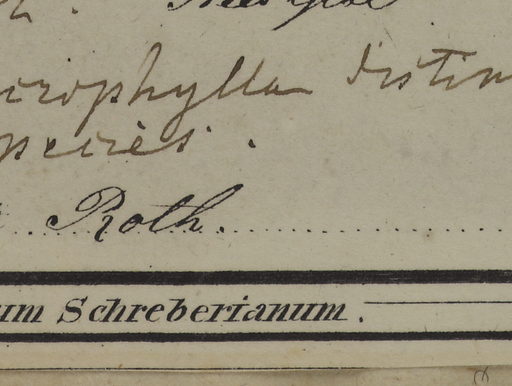 rophylla distin
species.
Roth.
um Schreberianum.